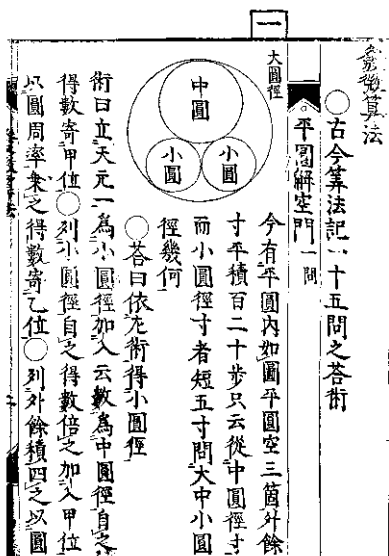 一
発微算法
○古今算法記一十五問之答術
平圓解空門一問
大圓徑
中圓
小圓
小圓
今有平圓内如圖平圓空三箇外餘
寸平積百二十歩只云從中圓徑寸
而小圓徑寸者短五寸問大中小圓
徑幾何
○答曰依左術得小圓徑
術曰立天元一爲小圓徑加入云數爲中圓徑自之
得數寄甲位○列小圓徑自之得數倍之加入甲位
以圓周率乗之得數寄乙位○列外餘積四之以圓